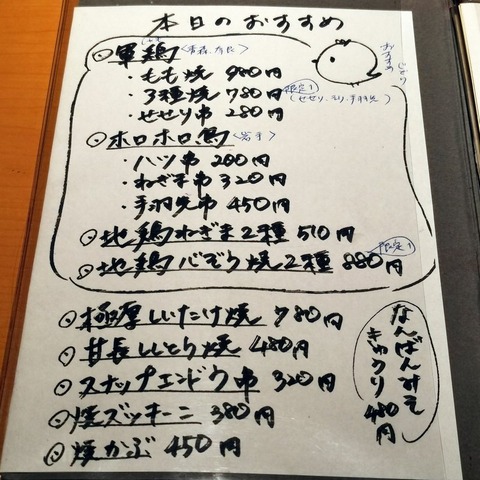 本日のおすすめ
軍鶏
もも焼 980円
3種焼 780円 限定1
(せせり、もも、手羽先)
せせり串 280円
ホロホロ鳥 <岩手>
ハツ串 200円
ねぎま串 320円
手羽先串 450円
地鶏ねぎま2種 510円
地鶏バぞり焼2種 880円 限定1
おすすめ
じどり
極厚しいたけ焼 780円
甘長ししとう焼 480円
スナップエンドウ串 320円
焼ズッキーニ 380円
焼かぶ 450円
なんばんみそ
きゅうり
480円